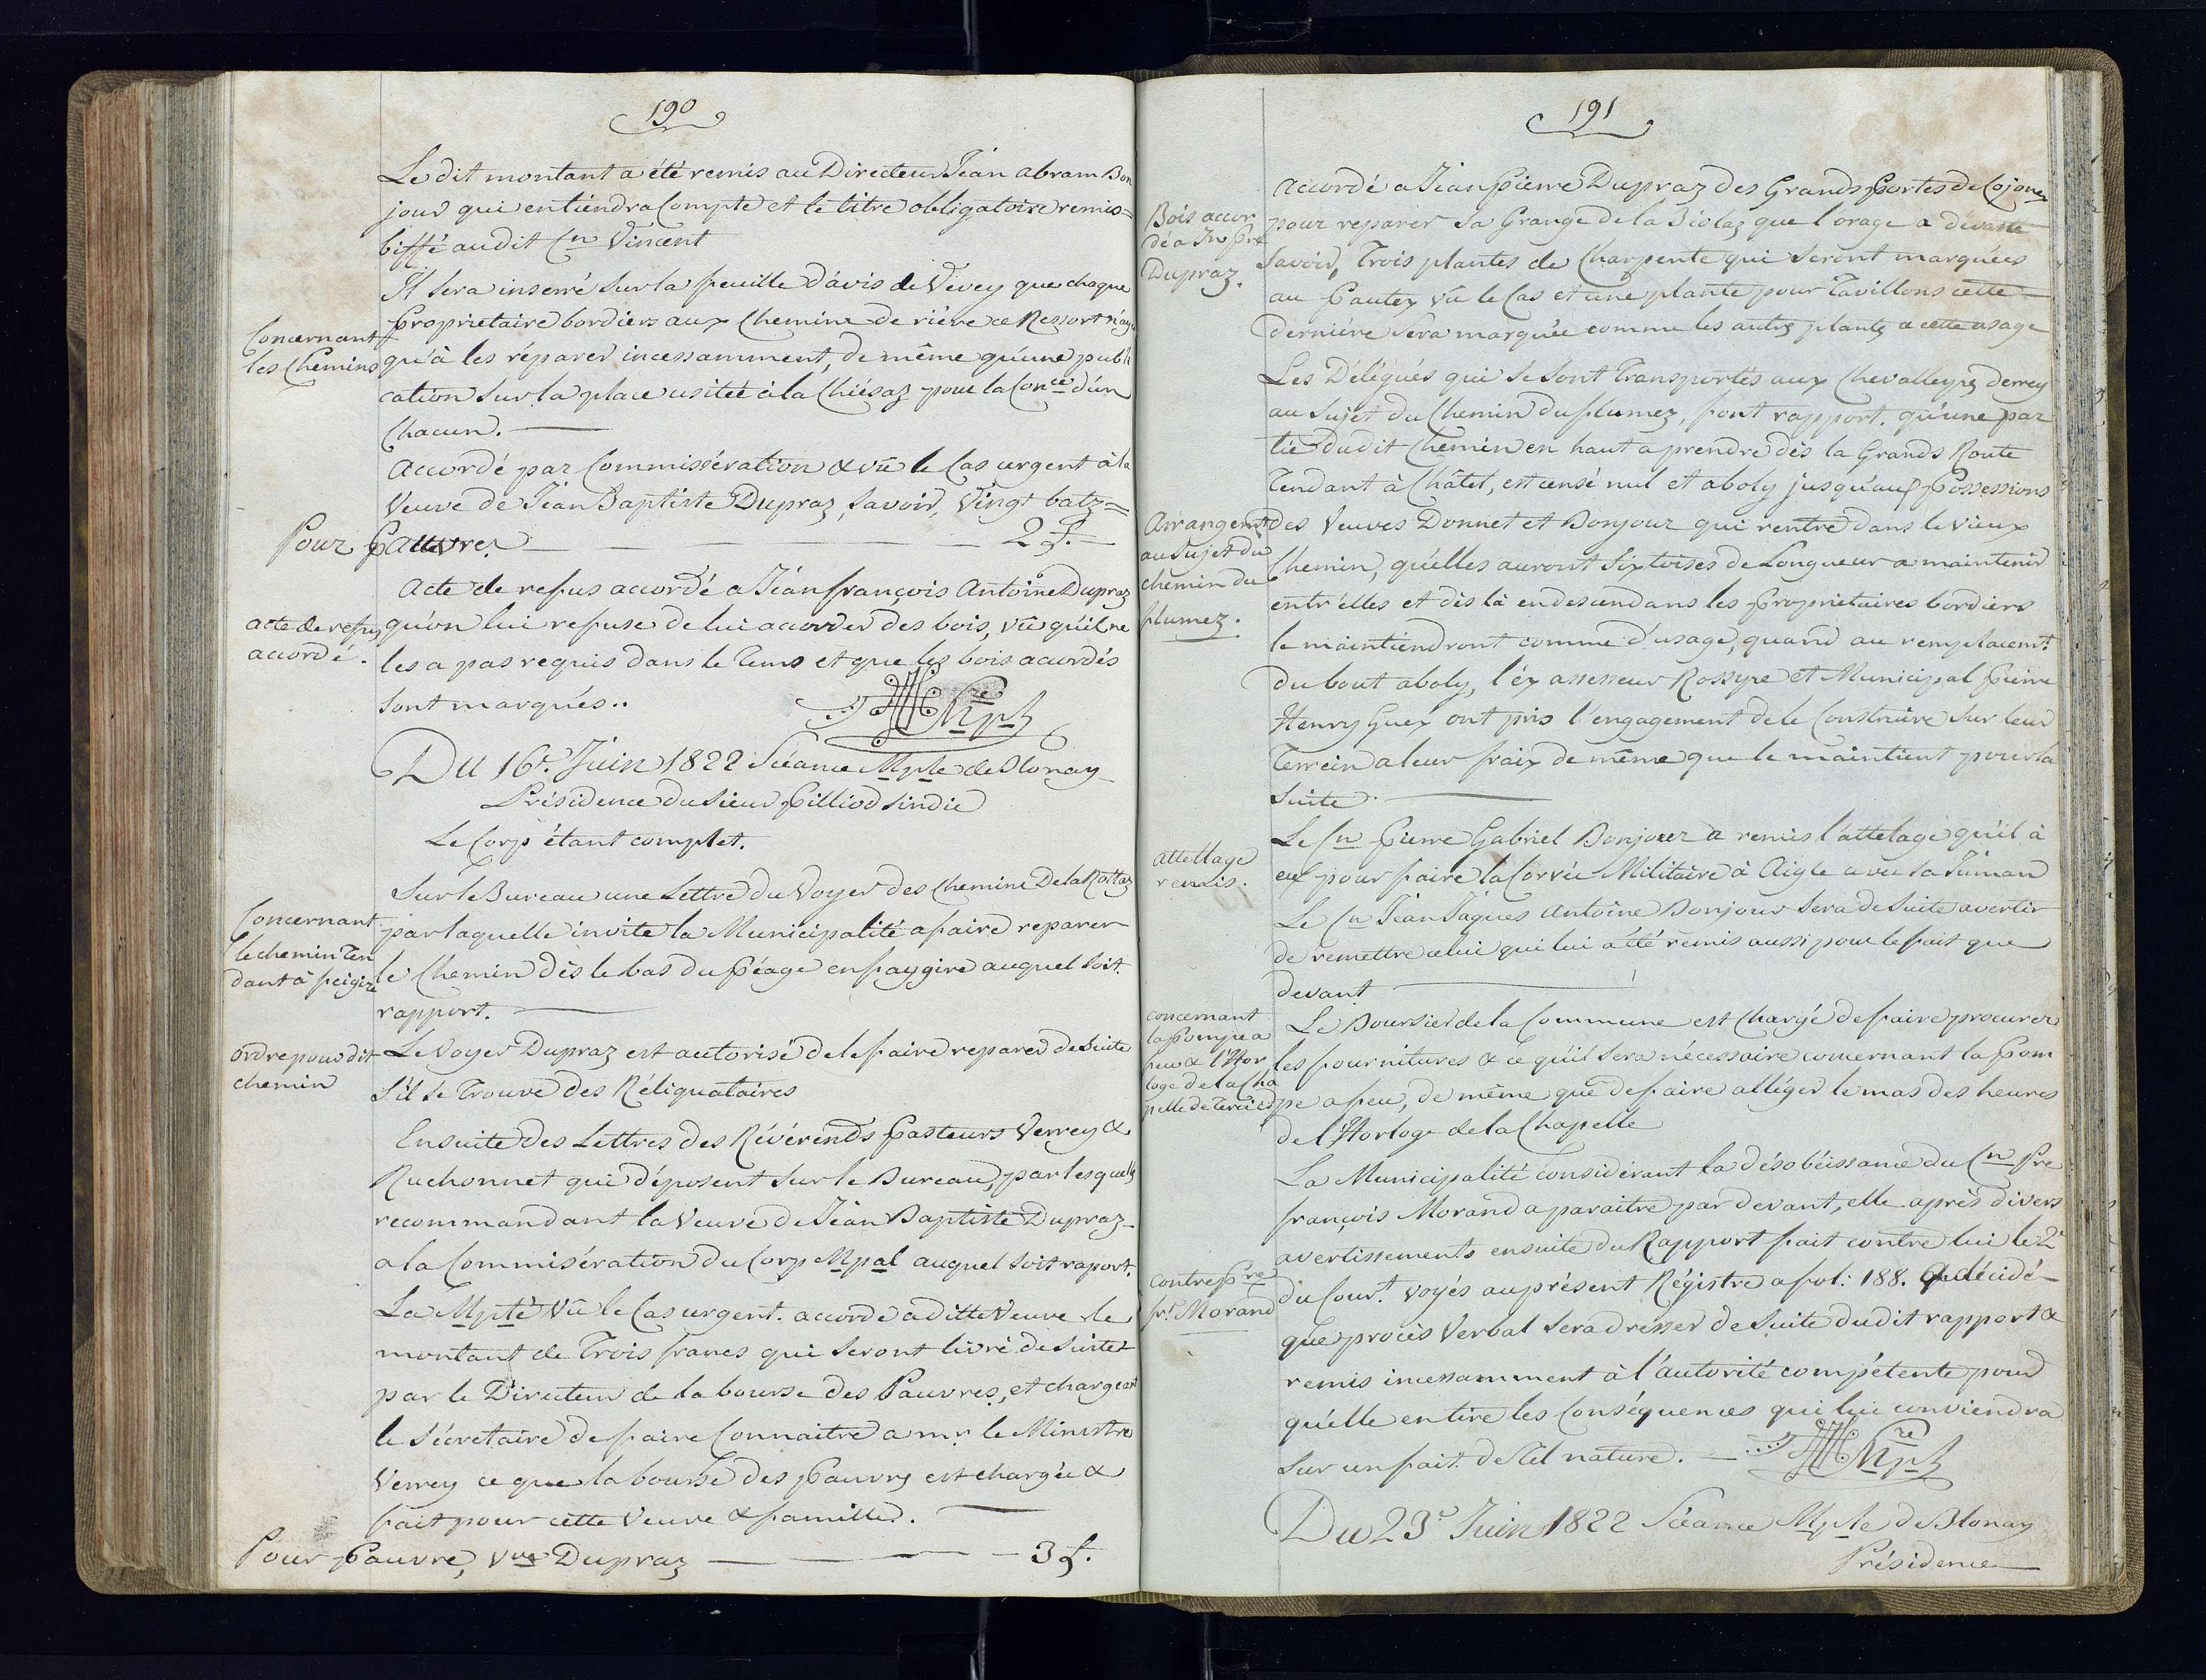 190
Le dit montant a été remis au Directeur Jéan abram Bon
jour qui en tiendra Compte et le titre obligatoire remis=
biffé audit Cn Vincent
Il sera inserré sur la feuille d'avis de Vevey que chaque
Concernant
les Chemins
Proprietaire bordiers aux Chemins de riére ce Ressort n'aye
qu'à les réparer incessamment, de même qu'une publi
cation sur la place usitée à la Chiésaz pour la Conce d'un
Chacun.
Accordé par Commissération & vû le Cas urgent à la
Veuve de Jéan Baptiste Dupraz, Savoir, Vingt batz=
Pour Pauvres 2 f.
Acte de refus accordé a Jéan françois Antoine Dupraz
acte de refus
accordé.
qu'on lui refuse de lui accorder des bois, vû qu'il ne
les a pas requis dans le Tems et que les bois accordés
sont marqués..
Du 16e. Juin 1822 Séance Mple de Blonay
Présidence du Sieur Pilliod Sindic
Le Corps étant complet.
Sur le Bureau une Lettre du Voyer des Chemins De la Rottaz
Concernant
le chemin Ten
dant à feigire
par laquelle invite la Municipalité a faire reparer
le Chemin dès le bas du Péage en faygire auquel soit
rapport.
ordre pour dit
chemin
Le Voyer Dupraz est autorisé de le faire reparer de Suite
s'il se Trouve des Réliquataires
Ensuite des Lettres des Révérends Pasteurs Verrey &
Ruchonnet qui déposent sur le Bureau, par lesquelles
recommandant la Veuve de Jéan Baptiste Dupraz
a la Commisération du Corp Mpal auquel soit raport.
La Mpté vû le Cas urgent. accorde a ditte Veuve le
montant de Trois francs qui seront livré de Suite
par le Directeur de la bourse des Pauvres, et chargeant
le Sécretaire de faire Connaitre a mr. le Ministre
Verrey ce que la bourse des Pauvres est chargée &
fait pour cette Veuve & famille.
Pour Pauvre, vve Dupraz 3 f.
191
Bois accor
dé a Jn Pre
Dupraz.
Accordé a Jéan Pierre Dupraz des Grands Portes de Cojonex
pour reparer Sa Grange de la Biolaz que l'orage a dévasté
Savoir, Trois plantes de Charpente qui seront marquées
au Pautex vû le Cas et une plante pour Tavillons cette
derniére sera marquée comme les autres plantes a cette usage
Les Délégués qui se sont Transportés aux Chevalleyres derrey
au sujet du Chemin du flumez, font rapport. qu'une par
tie du dit Chemin en haut a prendre dès la Grande Route
Tendant à Châtel, est censé nul et aboly jusqu'aux Possessions
Arrangent
au sujet du
chemin du
flumez.
des Veuves Donnet et Bonjour qui rentre dans le vieux
Chemin, qu'elles auront Six toises de Longueur a maintenir
entr'elles et dès là en descendans les Proprietaires bordiers
le maintiendront comme d'usage, quand au remplacemt.
du bout aboly, l'éx assesseur Rossyre et Municipal Pierre
Henry Guex ont pris l'engagement de le Construire sur leur
Terrein a leur fraix de même que le maintient pour la
Suite.
attellage
remis.
Le Cn Pierre Gabriel Bonjour a remis l'attelage qu'il à
eu pour faire la Corvée Militaire à Aigle avec sa Jûman
Le Cn Jéan Jaques Antoine Bonjour sera de Suite avertir
de remettre celui qui lui a été remis aussi pour le fait que
devant
concernant
la Pompe a
feu & l'Hor
loge de la Cha
pelle de Terciez
Le Boursier de la Commune est Chargé de faire procurer
les fournitures & ce qu'il sera nécessaire concernant la Pom
pe a feu, de même que de faire alléger le mas des heures
de l'Horloge de la Chapelle
La Municipalité considérant la désobéissance du Cn Pre
françois Morand a paraitre par devant, elle après divers
avertissements ensuite du Rapport fait contre lui le 2e
contre Pre
fs. Morand
du Court. voyés au présent Régistre a fol: 188. A décidé
que procès Verbal sera dresser de Suite dudit rapport &
remis incessamment à l'autorité compétente pour
qu'elle en tire les Conséquences qui lui conviendra
sur un fait de Tel nature.
Du 23e Juin 1822 Séance Mple de Blonay
Présidence